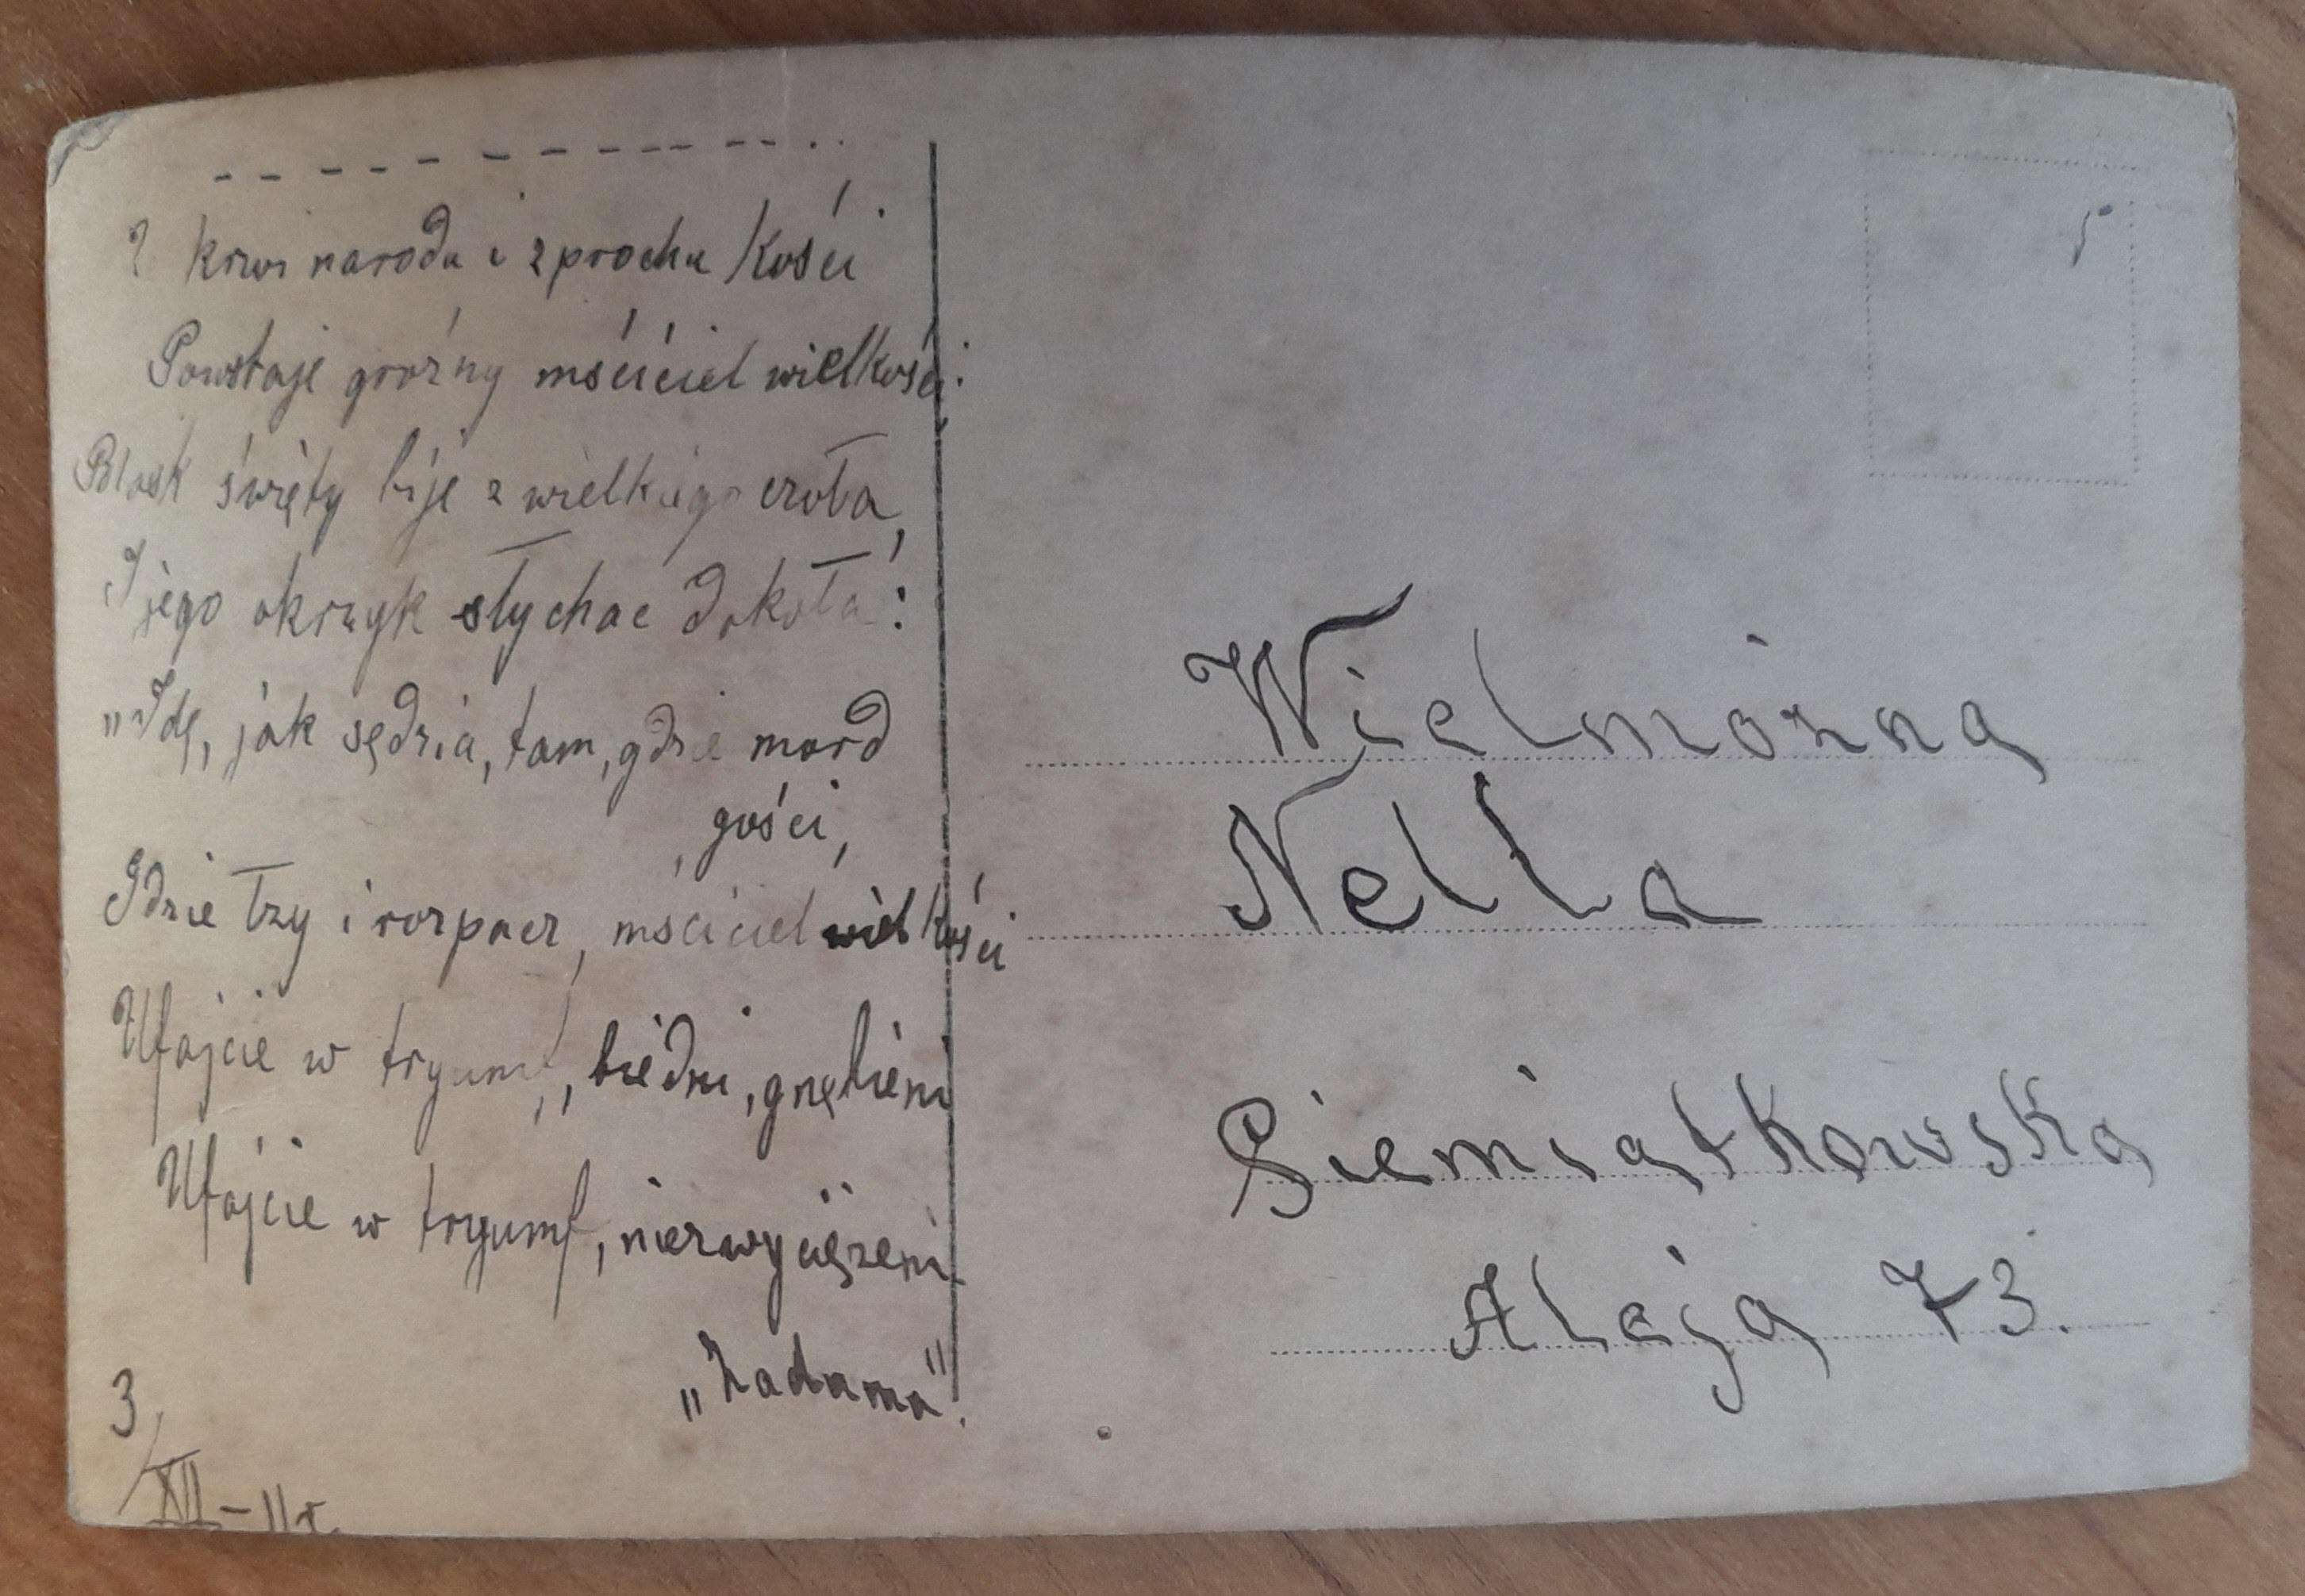 Z krwi narodu i z prochu kości
Powstaje groźny mściciel wielkości:
Blask święty bije z wielkiego czoła,
I jego okrzyk słychać dokoła:
„Idę, jak sędzia, tam, gdzie mord
gości,
Gdzie łzy i rozpacz, mściciel wielkości
Ufajcie w tryumf, biedni, gnębieni
Ufajcie w tryumf, niezwyciężeni.
„Zaduma".
3/XII-11r.
Wielmożna
Nella
Siemiątkowska
Aleja 73.